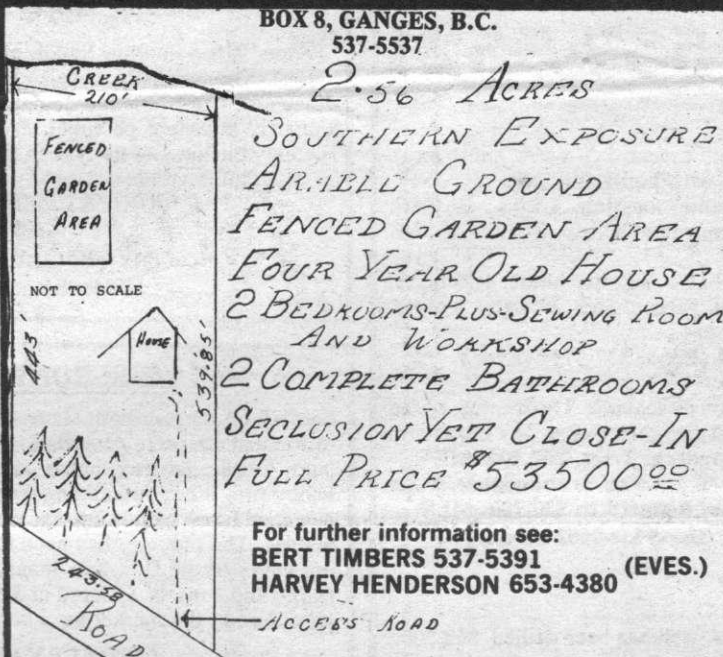 BOX 8, GANGES, B.C.
537-5537
CREEK
210'
FENCED
GARDEN
AREA
NOT TO SCALE
HOUSE
443'
539.85'
243.58
ROAD
ACCESS ROAD
2.56 ACRES
SOUTHERN EXPOSURE
ARABLE GROUND
FENCED GARDEN AREA
FOUR YEAR OLD HOUSE
2 BEDROOMS-PLUS-SEWING ROOM
AND WORKSHOP
2 COMPLETE BATHROOMS
SECLUSION YET CLOSE-IN
FULL PRICE $53500.00
For further information see:
BERT TIMBERS 537-5391
HARVEY HENDERSON 653-4380 (EVES.)